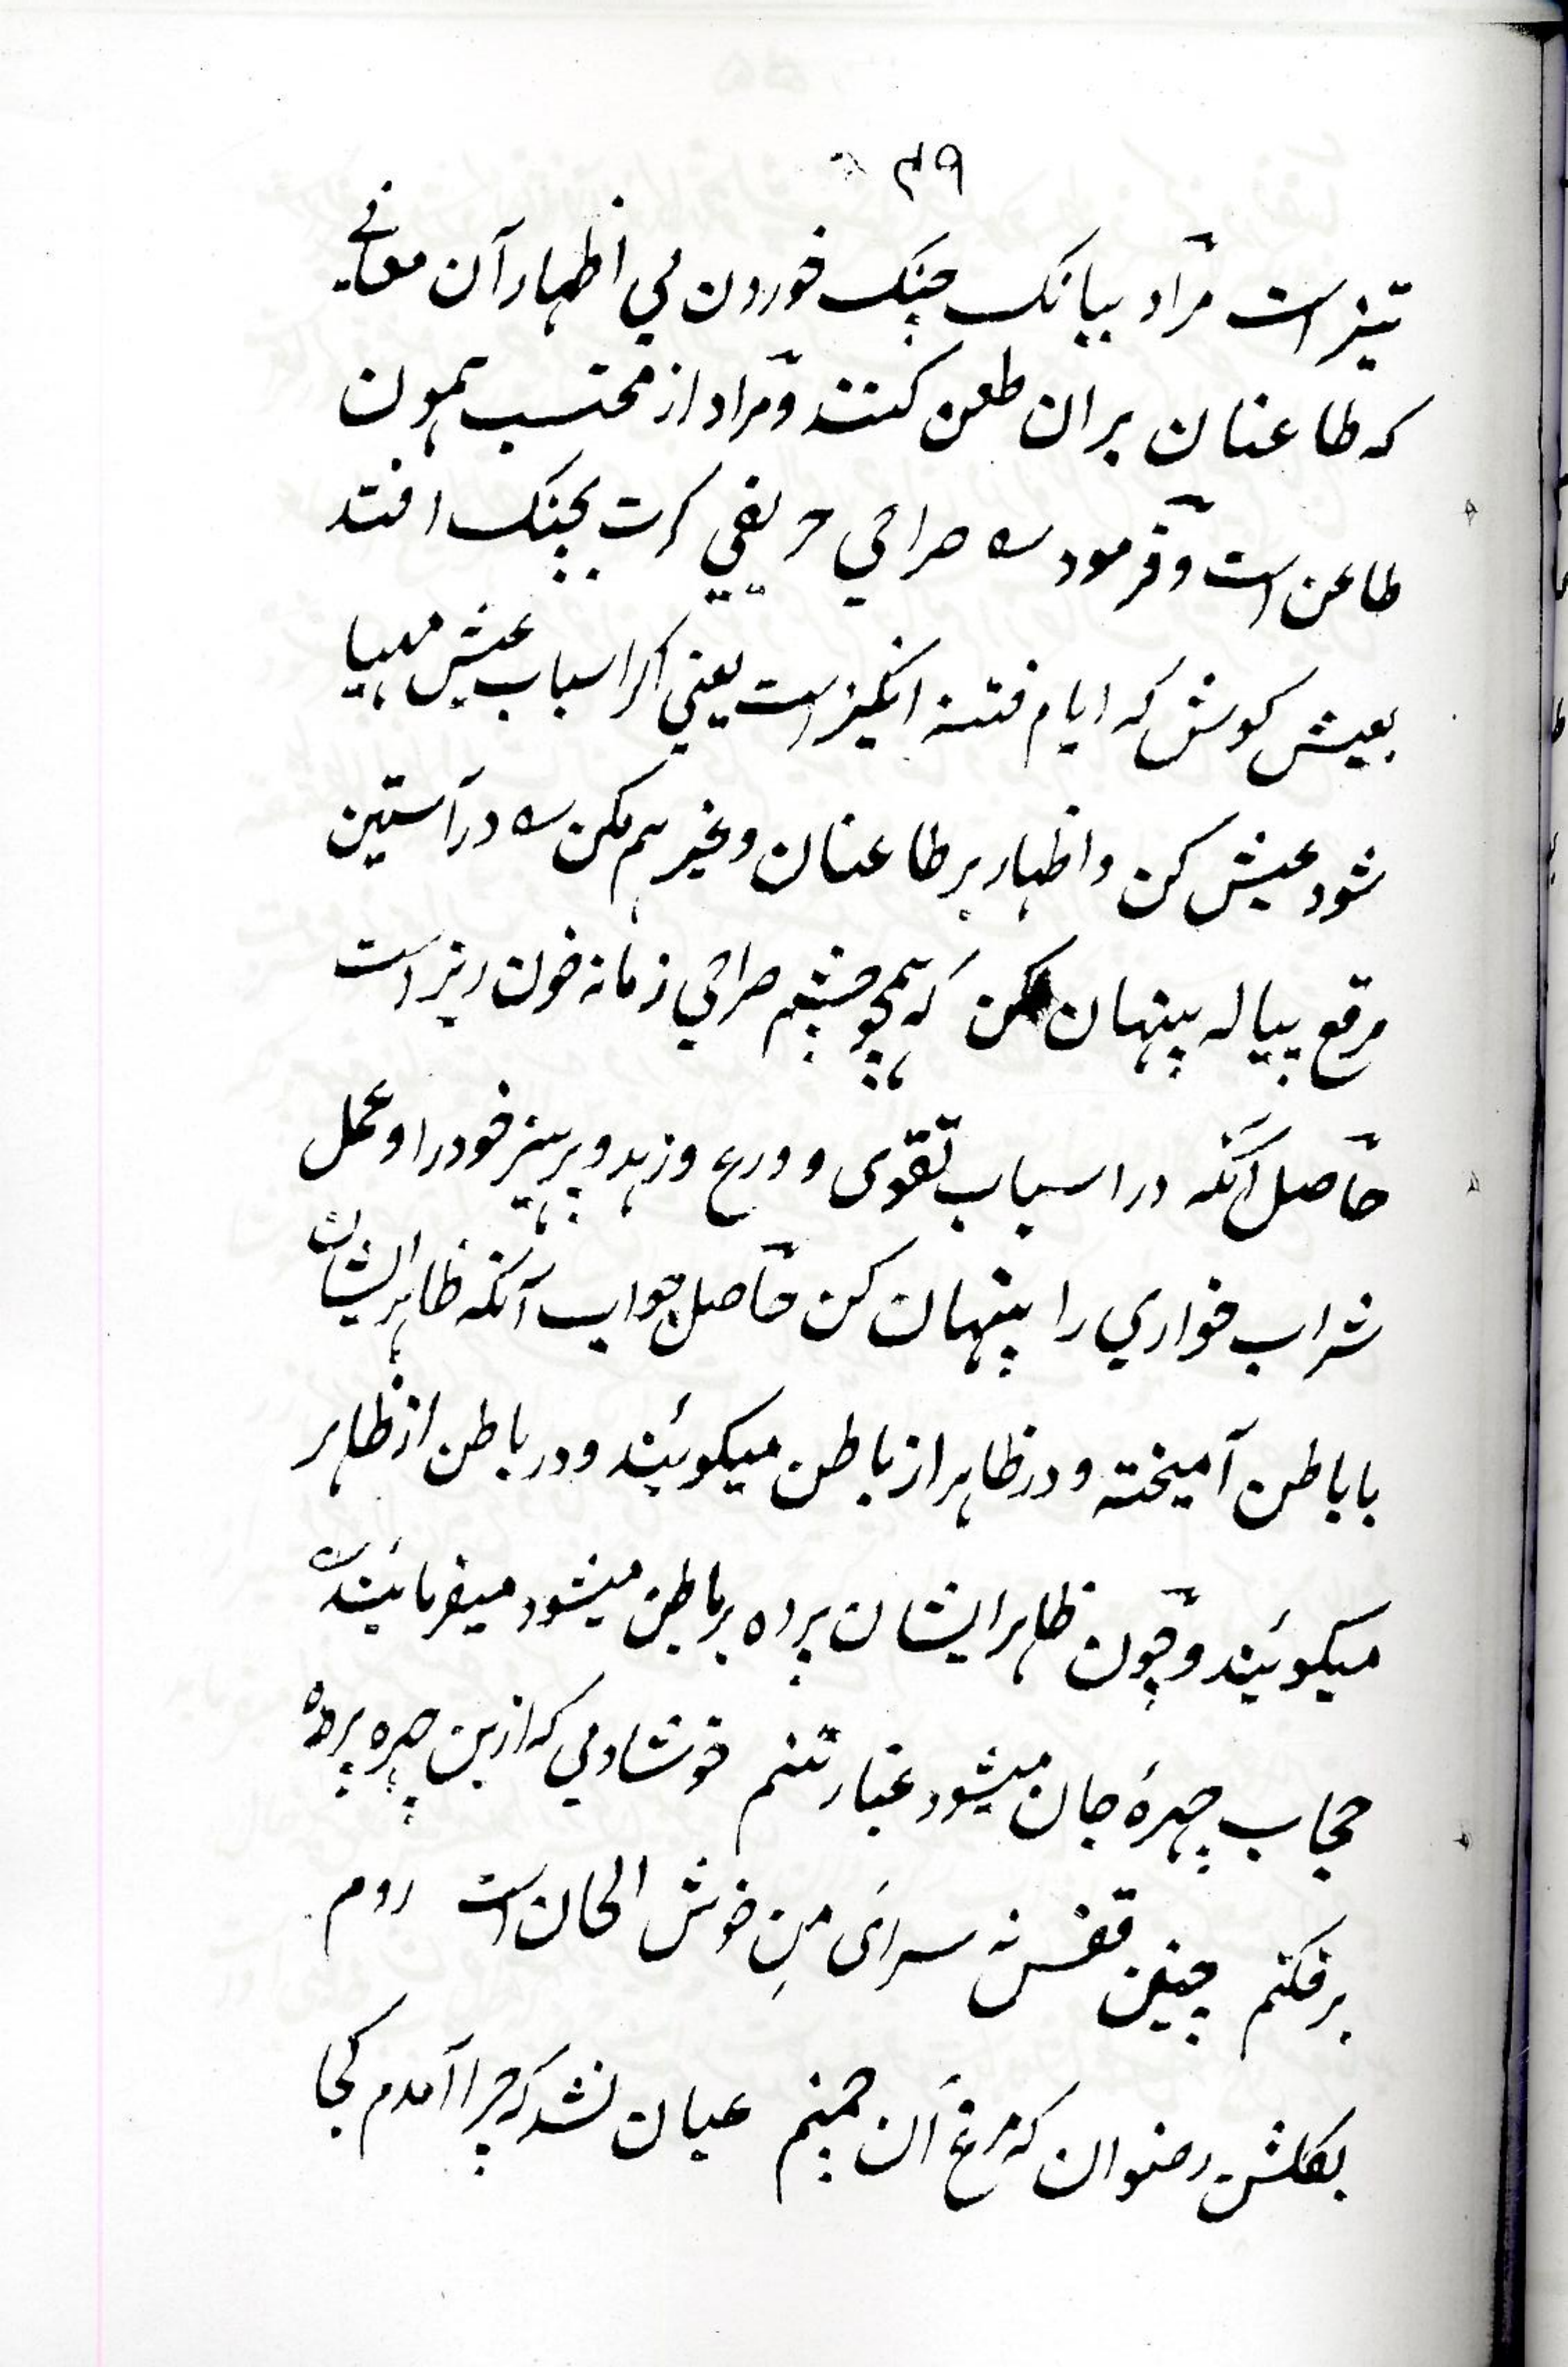 ۴۹
تیز است مراد ببانک چنک خوردن مي اظهار آن معانے
که طاعنان بران طعن کنند و مراد از محتسب همون
طاعن است و فرمود صراحي حریفي کرت بچنک افتد
بعیش کوش که ایام فتنه انکیز است یعني اکر اسباب عیش مهیا
شود عیش کن و اظهار بر طاعنان و غیرهم مکن در آستین
مرقع پیاله پنهان کن که همچو چشم صراحي زمانه خون ریز است
حاصل آنکه در اسباب تقوی و ورع و زهد و پرهیز خود را و عمل
شراب خواري را پنهان کن حاصل جواب آنکه ظاهر ایشان
با باطن آمیخته و در ظاهر از باطن میکویند و در باطن از ظاهر
میکوئیند و چون ظاهر ایشان پرده بر باطن میشود میفرمایند
حجاب چهرهٔ جان میشود غبار تنم خوشا دمي که ازین چهره پرده
برفکنم چنین قفس نه سرای منِ خوش الحان است روم
بکلشن رضوان که مرغ آن چمنم عیان نشد که چرا آمدم کجا